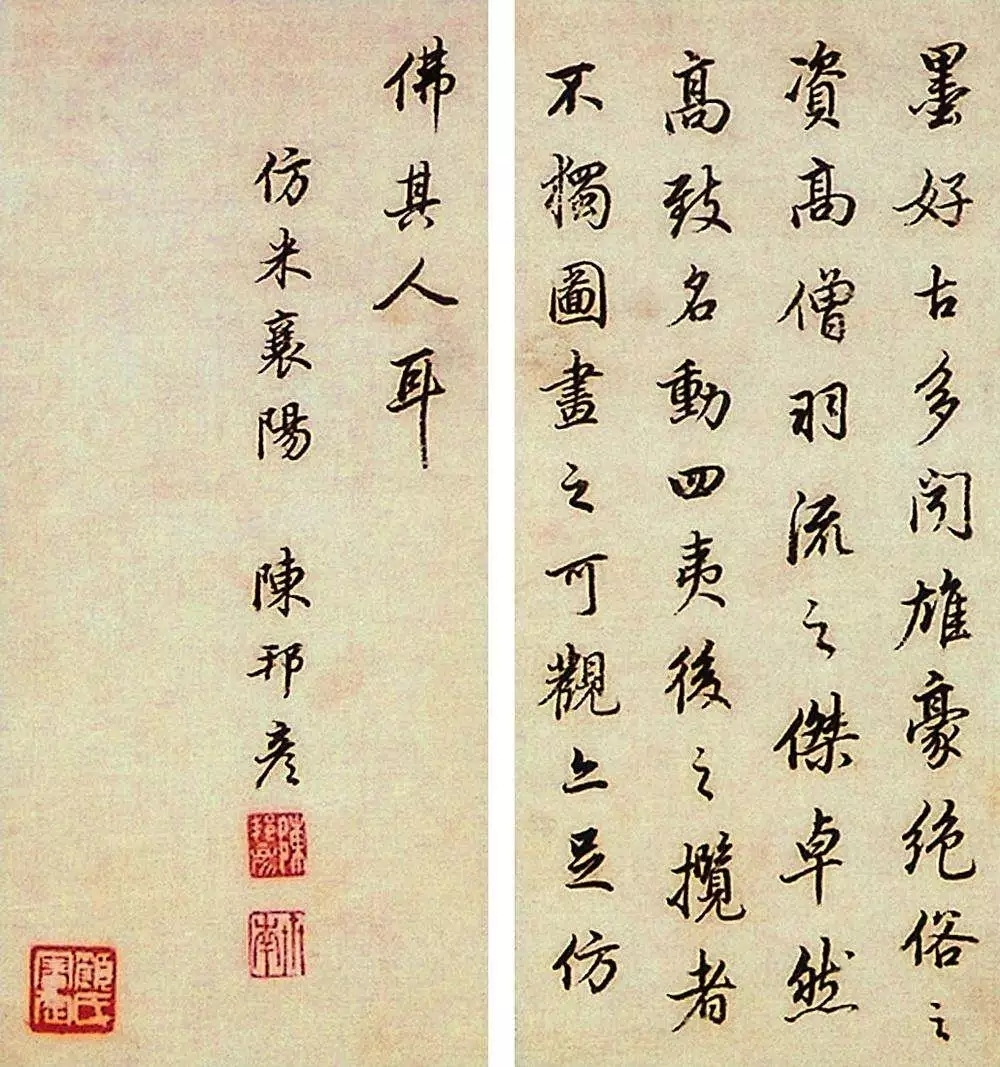 墨好古多聞雄豪絶俗之
資高僧羽流之傑卓然
高致名動四夷後之攬者
不獨圖畫之可觀亦足仿
佛其人耳
仿米襄陽 陳邦彥
陳邦彥
顧氏